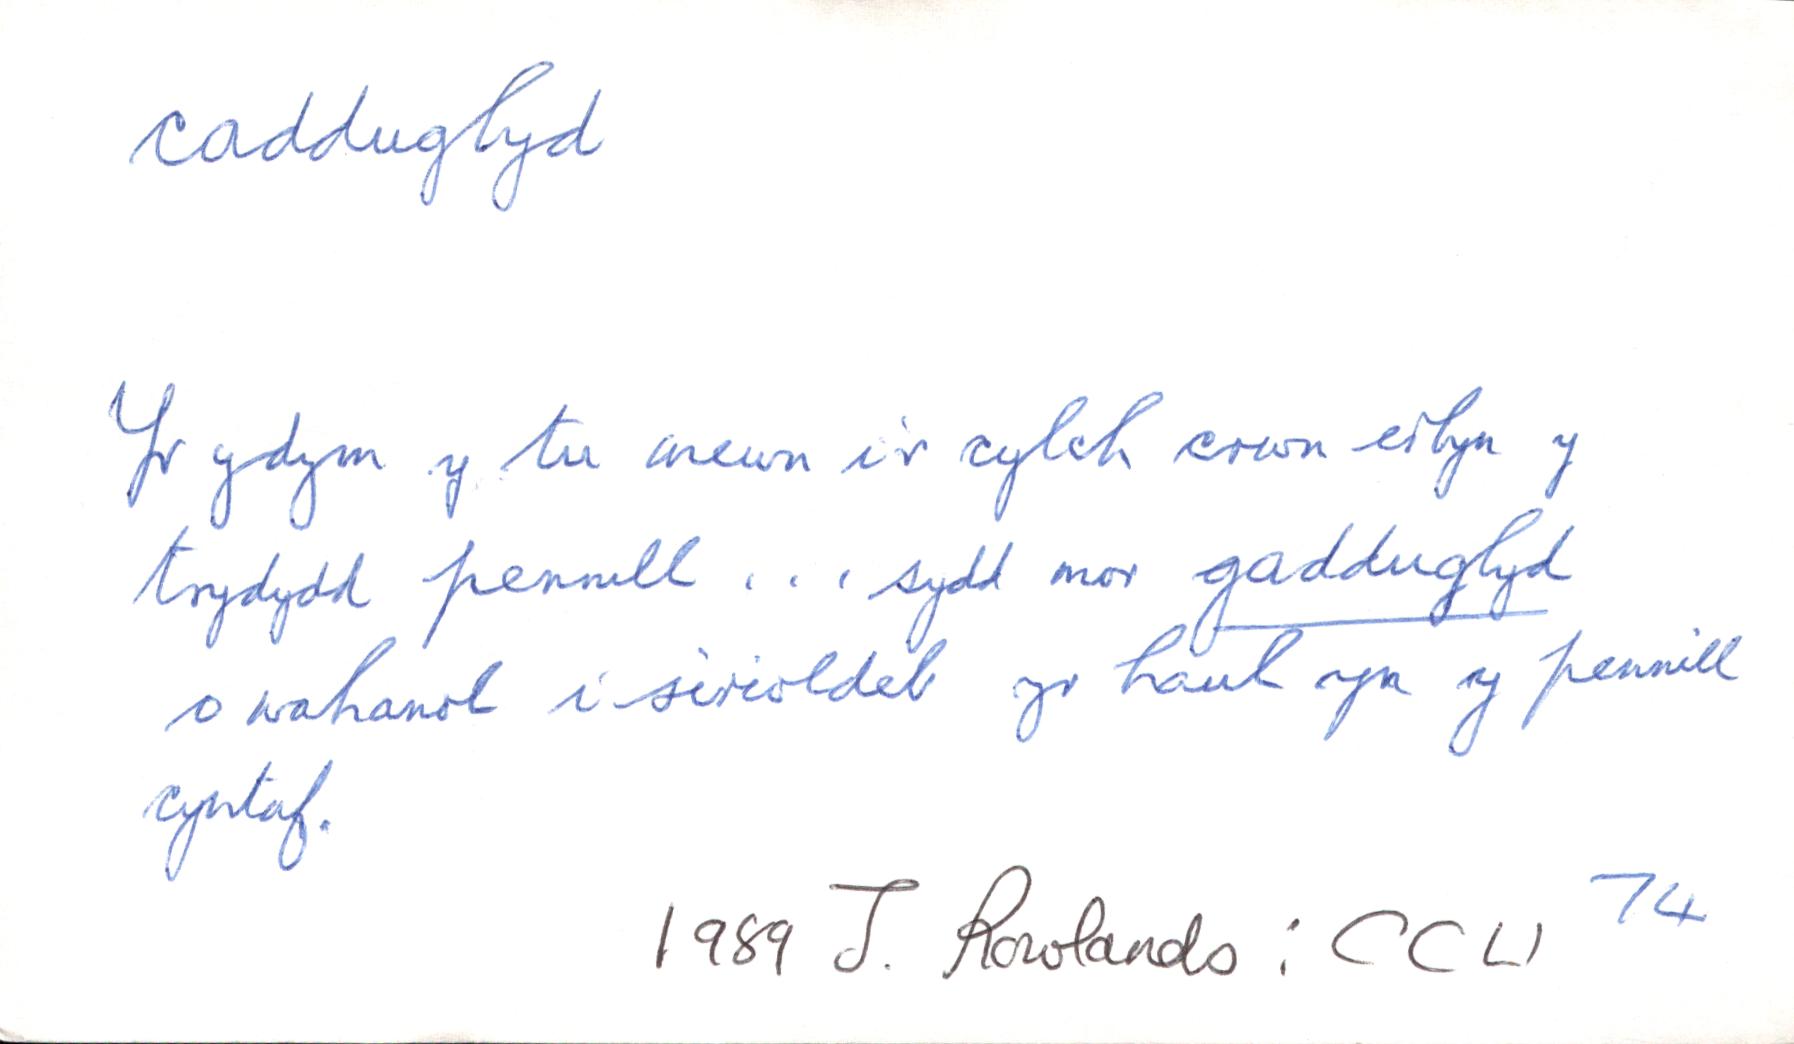 cadduglyd
Yr ydym y tu mewn i'r cylch crwn erbyn y
trydydd pennill ... sydd mor gadduglyd
o wahanol i sirioldeb yr haul yn y pennill
cyntaf.
1989 J. Rowlands : CCLl 74